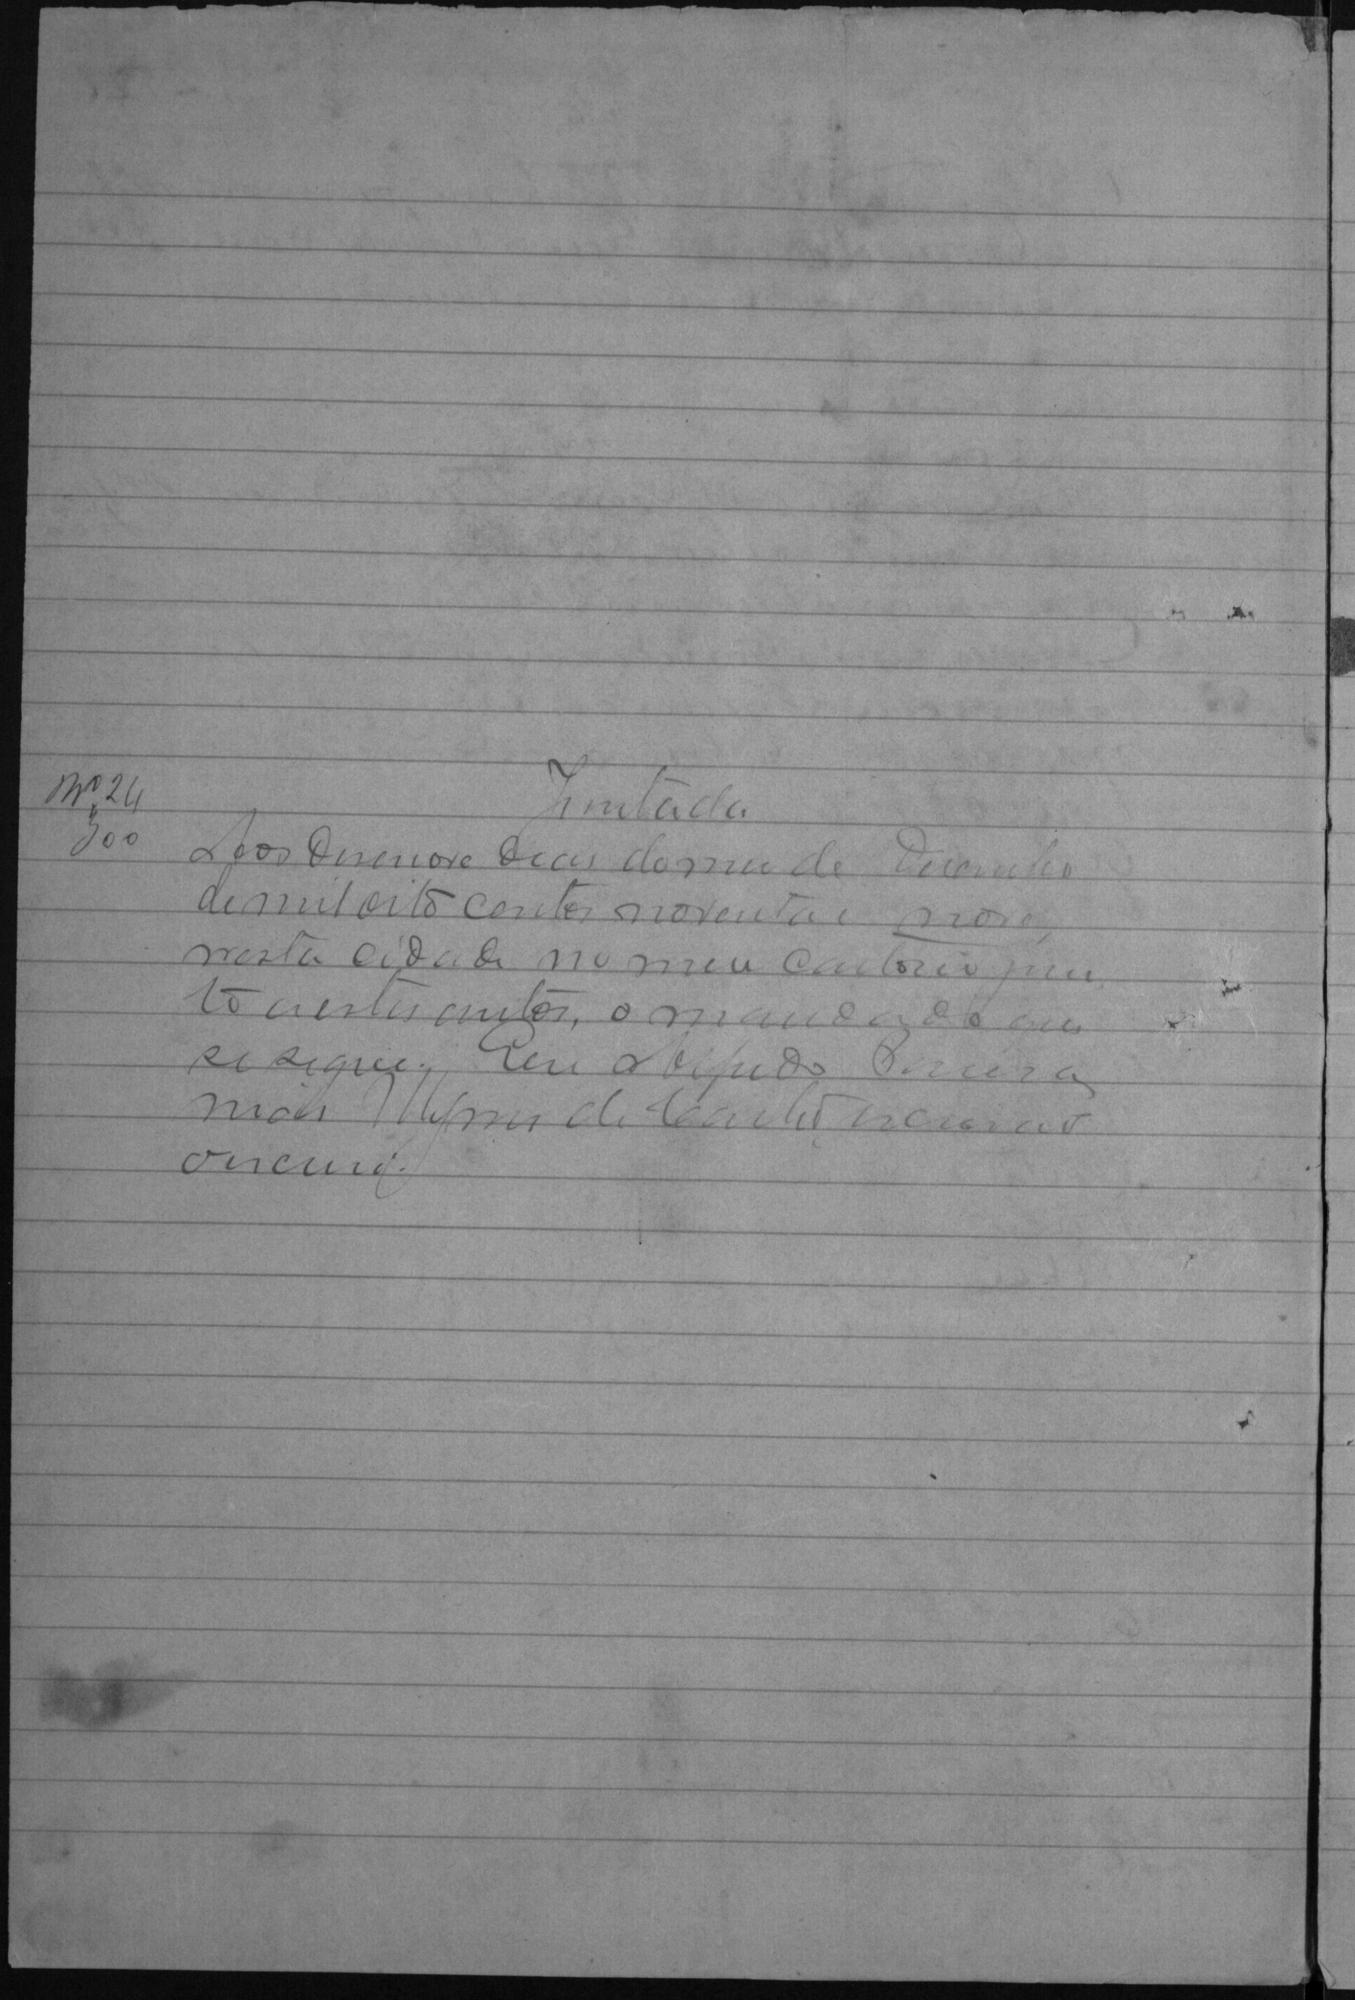 Nº 24
300
Juntada
Aos desenove dias do mez de Dezembro
de mil oito centos noventa e nove,
nesta cidade no meu cartorio jun
to a estes autos, o mandado que
se segue. Eu
escrivão
o escrevi.